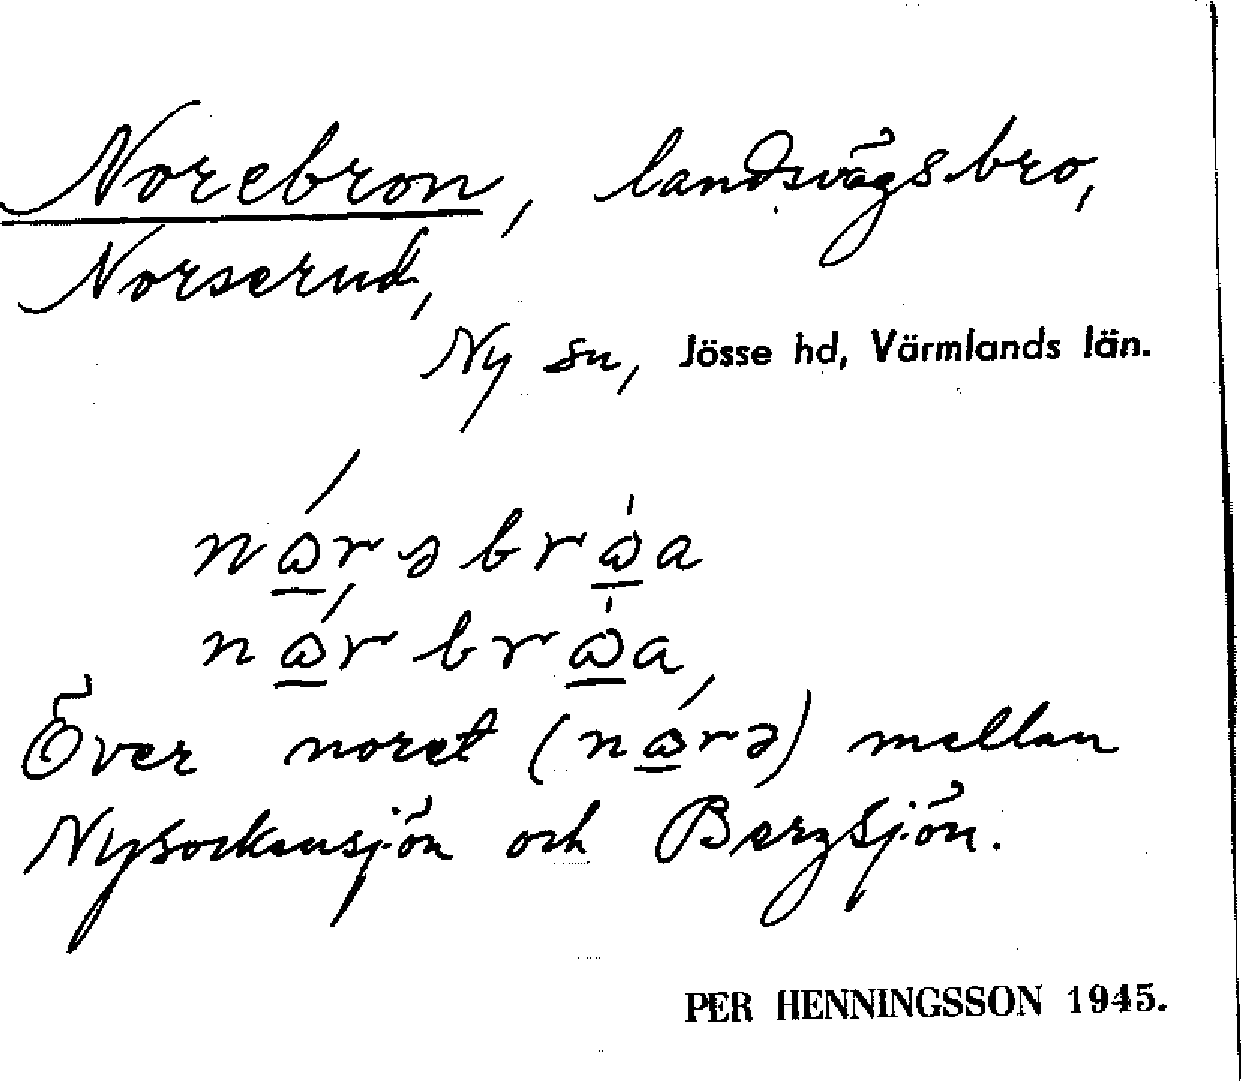 Norebron, landsvägsbro,
Norserud,
Ny sn, Jösse hd, Värmlands län.
nώ̲rəbrὼ̲a
nώ̲rbrὼ̲a
Över noret (nώ̲rə) mellan
Nysockensjön och Bergsjön.
PER HENNINGSSON 1945.